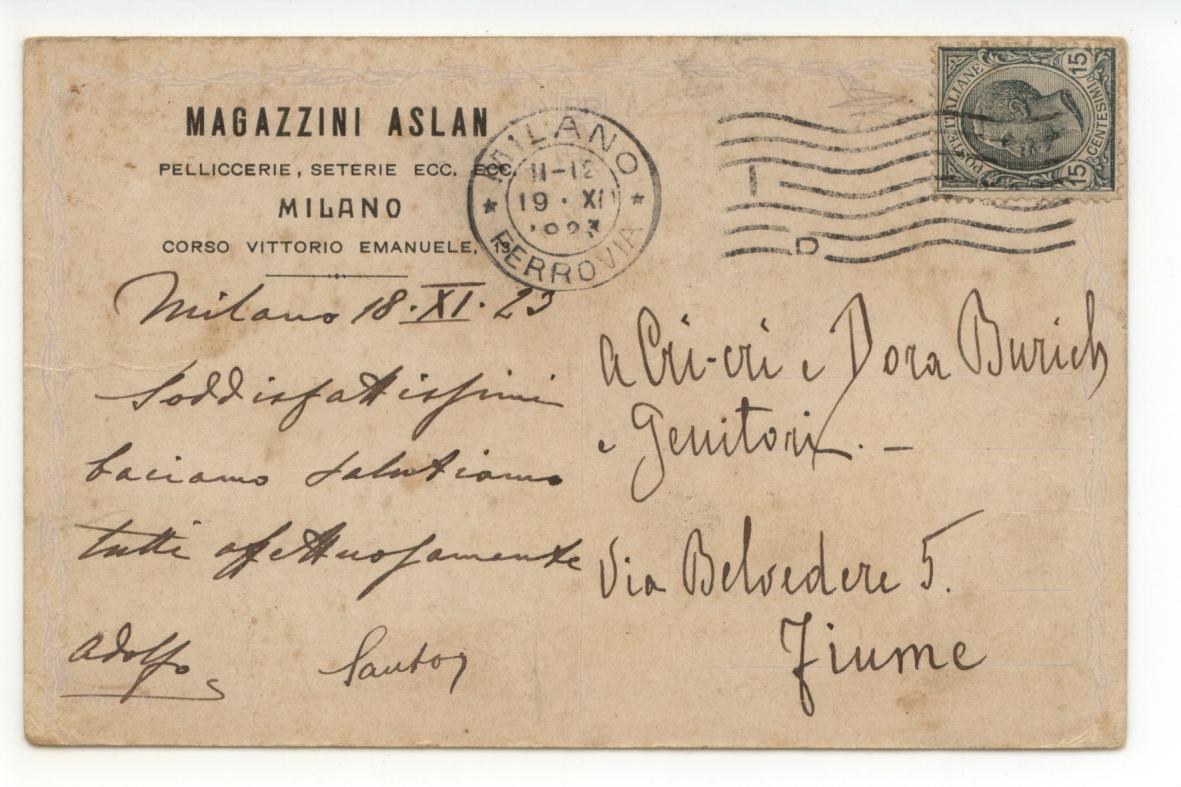 MAGAZZINI ASLAN
PELLICCERIE, SETERIE ECC. ECC.
MILANO
CORSO VITTORIO EMANUELE, 13
MILANO
11-12
19 · XI
1923
FERROVIA
POSTE ITALIANE
15 CENTESIMI 15
Milano 18·XI·23
Soddisfattissimi
baciamo salutiamo
tutti affettuosamente
Adolfo
a Cri-cri e Dora Burich
e Genitori. —
Via Belvedere 5.
Fiume